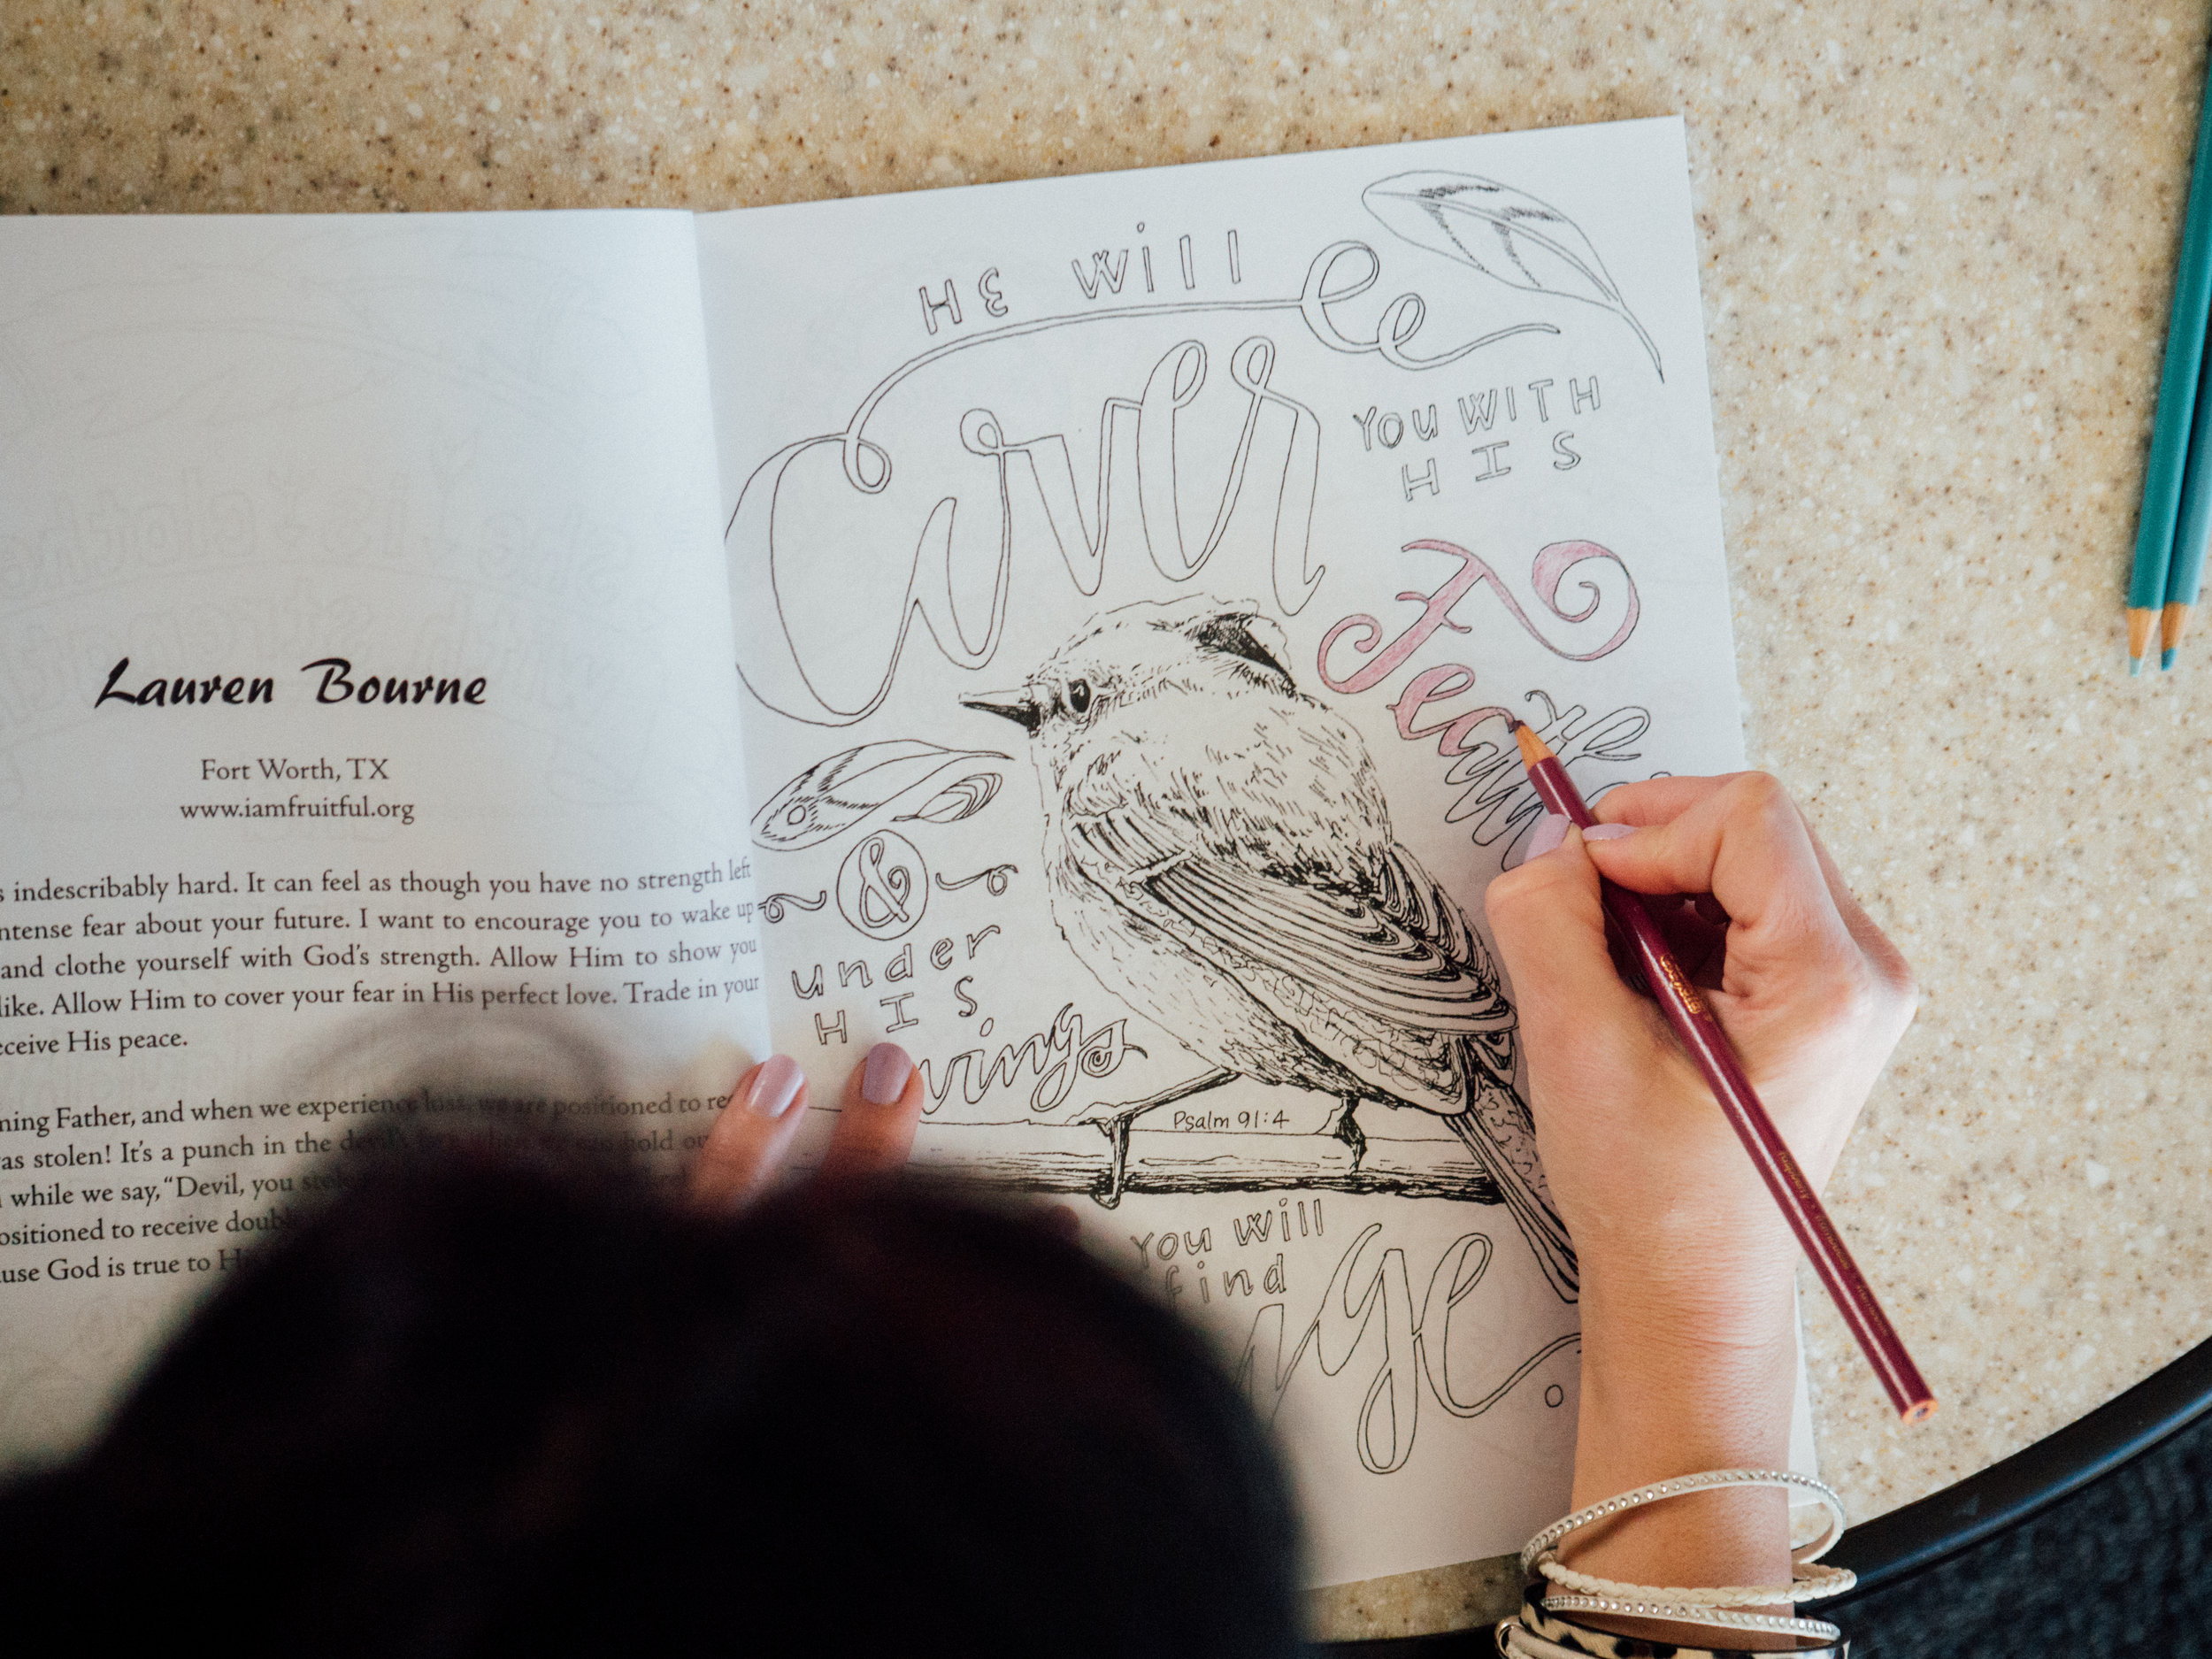 Lauren Bourne
Fort Worth, TX
www.iamfruitful.org
indescribably hard. It can feel as though you have no strength left
fear about your future. I want to encourage you to wake up
and clothe yourself with God's strength. Allow Him to show you
like. Allow Him to cover your fear in His perfect love. Trade in your
His peace.
Father, and when we experience loss, we are positioned to
stolen! It's a punch in the hold
while we say, "Devil, you
to receive
God is true to
HE Will
Cover
YOU WITH
HIS
Feath
&
under
HIS
wings
Psalm 91:4
You will
find